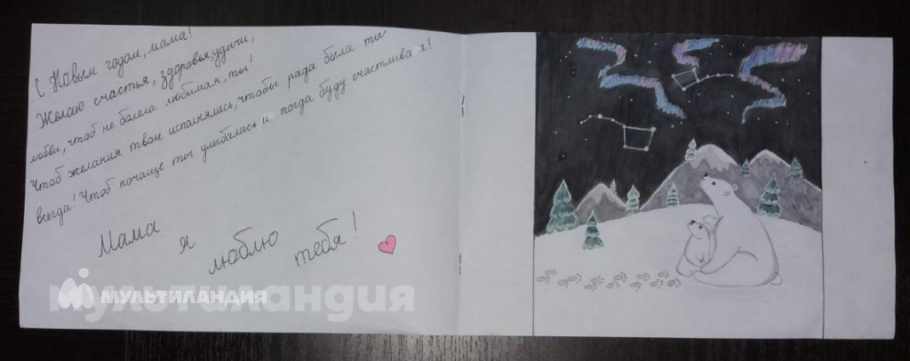 С Новым годом, мама!
Желаю счастья, здоровья, удачи,
любви, чтоб не болела любимая, ты!
Чтоб желания твои исполнялись, чтобы рада была ты
всегда! Чтоб почаще ты улыбалась и тогда буду счастлива я!
Мама я люблю тебя!
МУЛЬТИЛАНДИЯ
мультиландия